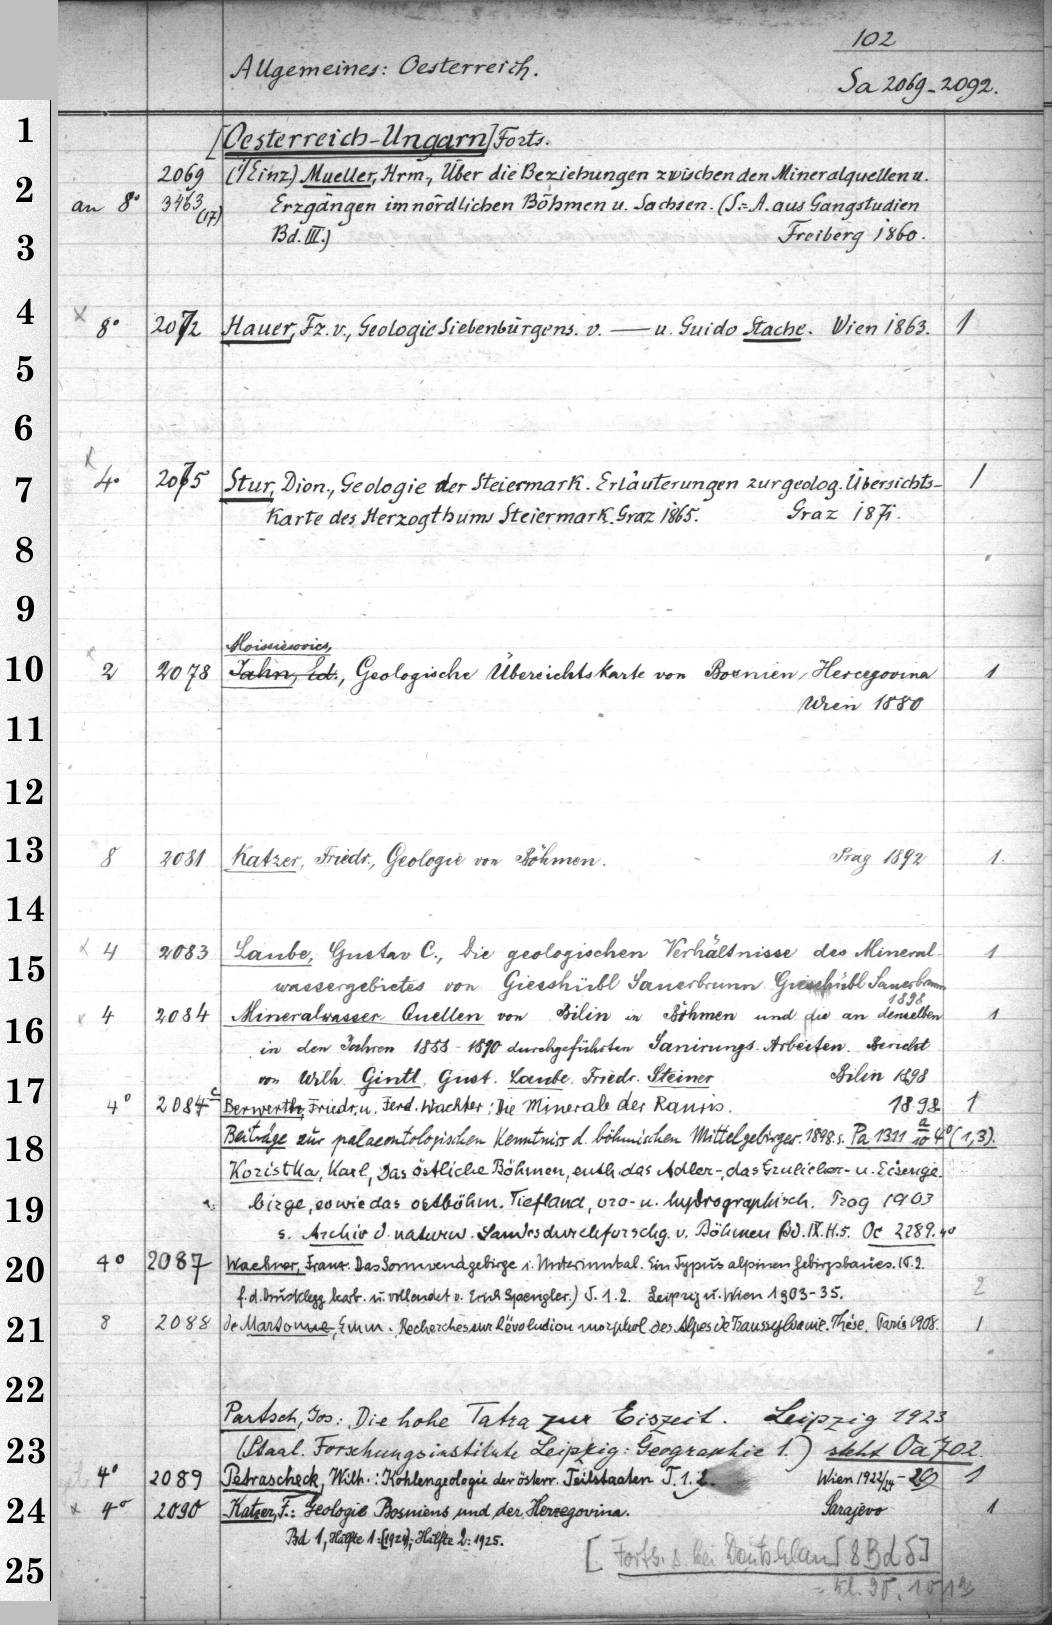 102
Allgemeines: Oesterreich.
Sa 2069-2092.
1
[Oesterreich-Ungarn] Forts.
2069 (Einz) Mueller, Hrm., Über die Beziehungen zwischen den Mineralquellen u.
2
an 8° 3463 (17) Erzgängen im nördlichen Böhmen u. Sachsen. (S.-A. aus Gangstudien
3
Bd. III.) Freiberg 1860.
4
x 8° 2072 Hauer, Fz. v., Geologie Siebenbürgens. v. — u. Guido Stache. Wien 1863. 1
5
6
7
x 4° 2075 Stur, Dion., Geologie der Steiermark. Erläuterungen zur geolog. Übersichts- 1
Karte des Herzogthums Steiermark. Graz 1865. Graz 1871.
8
9
Moissisovics,
10
x 2 2078 Jahn, Ed., Geologische Übersichtskarte von Bosnien, Hercegovina 1
Wien 1880
11
12
13
8 2081 Katzer, Friedr., Geologie von Böhmen. Prag 1892 1.
14
x 4 2083 Laube, Gustav C., Die geologischen Verhältnisse des Mineral- 1
15
wassergebietes von Giesshübl Sauerbrunn Giesshübl Sauerbrunn
1898
x 4 2084 Mineralwasser Quellen von Bilin in Böhmen und die an denselben 1
16
in den Jahren 1888-1890 durchgeführten Sanirungs-Arbeiten. Bericht
von Wilh. Gintl, Gust. Laube, Friedr. Steiner Bilin 1898
17
4° 2084c Berwerth, Friedr. u. Ferd. Wachter: Die Minerale der Rauris. 1898 1
18
Beiträge zur palaeontologischen Kenntnis d. böhmischen Mittelgebirges. 1898. s. Pa 1311 a/10 4° (1,3).
Koristka, Karl, Das östliche Böhmen, enth. das Adler-, das Grulicher- u. Eisenge-
19
birge, sowie das ostböhm. Tiefland, oro- u. hydrographisch. Prag 1903
s. Archiv d. naturw. Landesdurchforschg. v. Böhmen Bd. IX. H. 5. Oc 2289. 4°
20
4° 2087 Waehner, Franz. Das Sonnwendgebirge i. Unterinntal. Ein Typus alpinen Gebirgsbaues. (T. 2.
f. d. Drucklegg bearb. u. vollendet v. Erich Spengler.) T. 1. 2. Leipzig u. Wien 1903-35. 2
21
8 2088 de Martonne, Emm. Recherches sur l'évolution morphol. des Alpes de Transsylvanie. Thèse. Paris 1908. 1
22
Partsch, Jos.: Die hohe Tatra zur Eiszeit. Leipzig 1923
23
(Staatl. Forschungsinstitute Leipzig: Geographie 1.) steht Oa 702
4° 2089 Petrascheck, Wilh.: Kohlengeologie der österr. Teilstaaten T. 1. 2. Wien 1922/24-29 1
24
x 4° 2090 Katzer, F.: Geologie Bosniens und der Herzegovina. Sarajevo 1
Bd 1, Hälfte 1: [1924]; Hälfte 2: 1925.
25
[Forts. s. bei Deutschland 8 Bd 5]